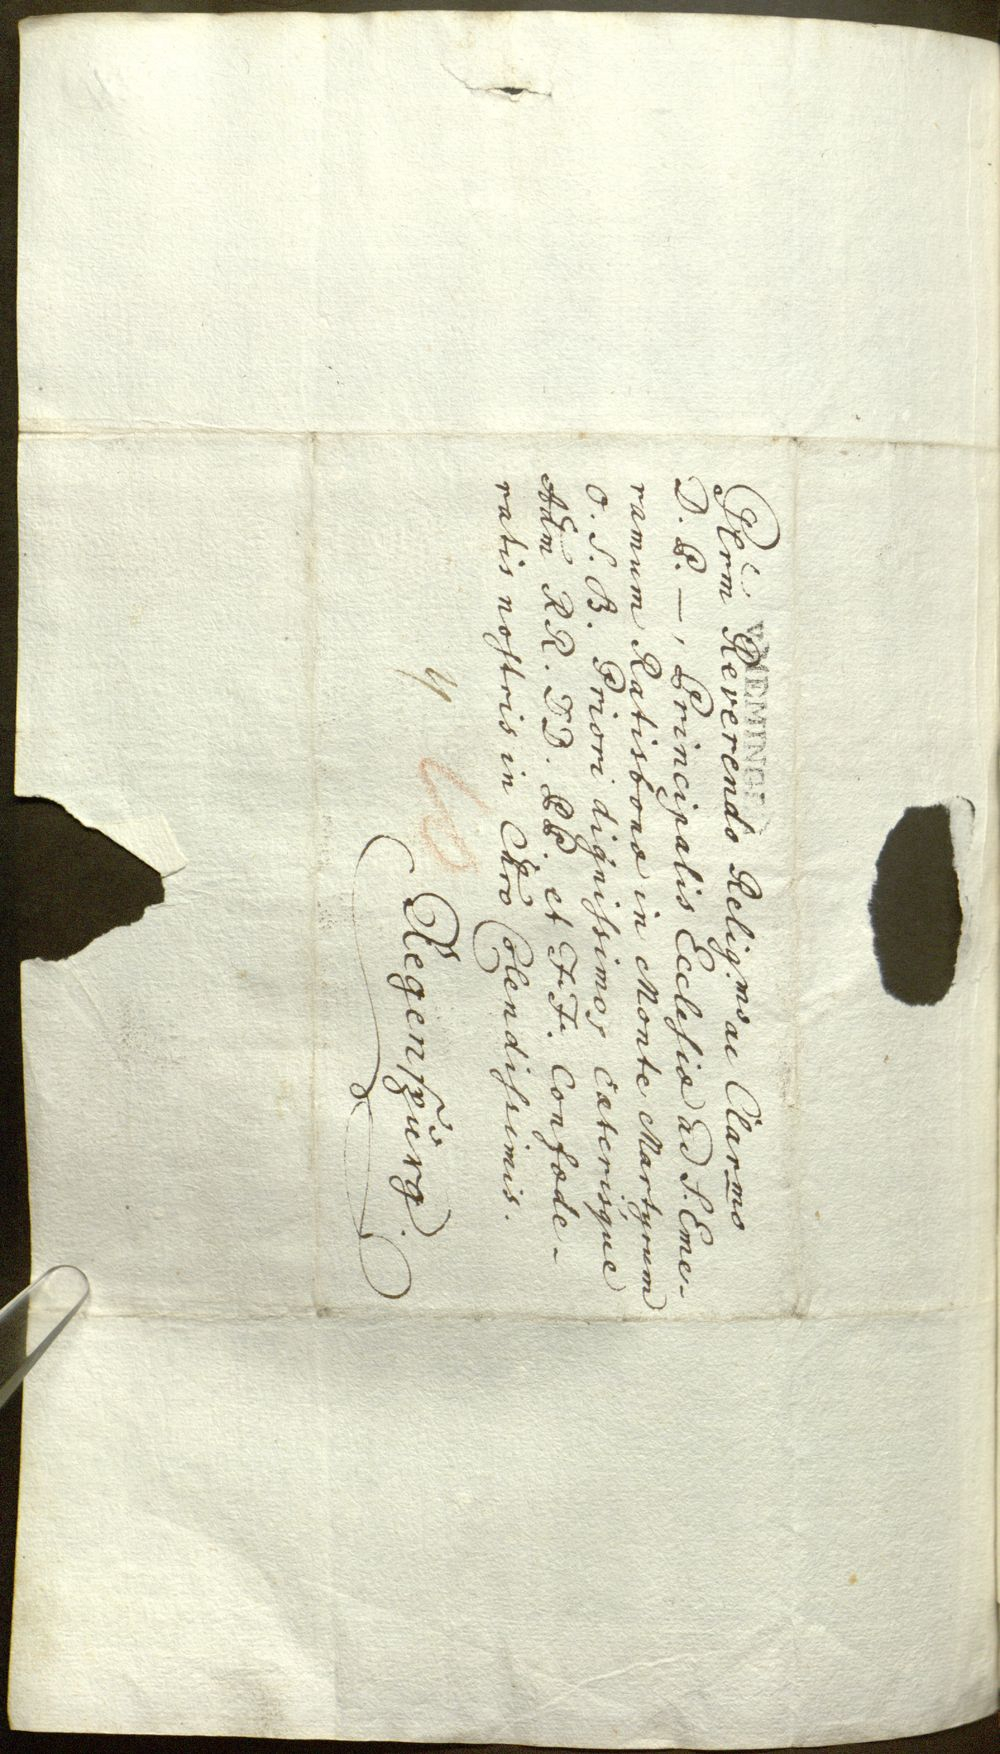 V. MEMINGE
Plrm̃ Reverendo Religmo ac Clarmo
D. P. —, Principalis Ecclesiæ ad S. Eme-
ramum Ratisbonæ in Monte Martyrum
O. S. B. Priori dignissimo, cæterisque
Adm̃ RR. DD. PP. et FF. Confæde-
ratis nostris in Chro Colendissimis.
Regenspurg.